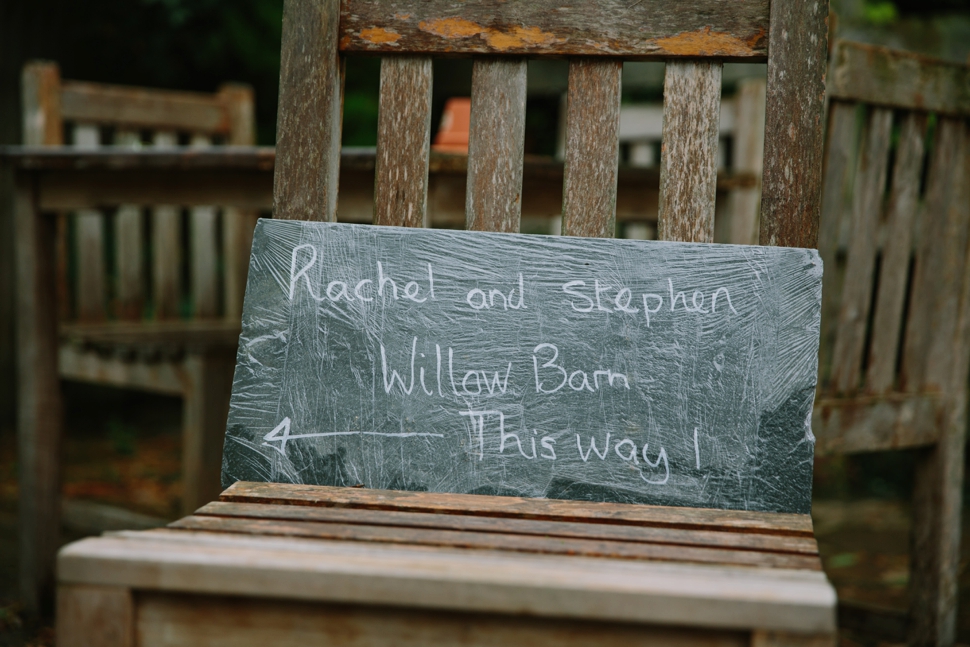 Rachel and Stephen
Willow Barn
This way !